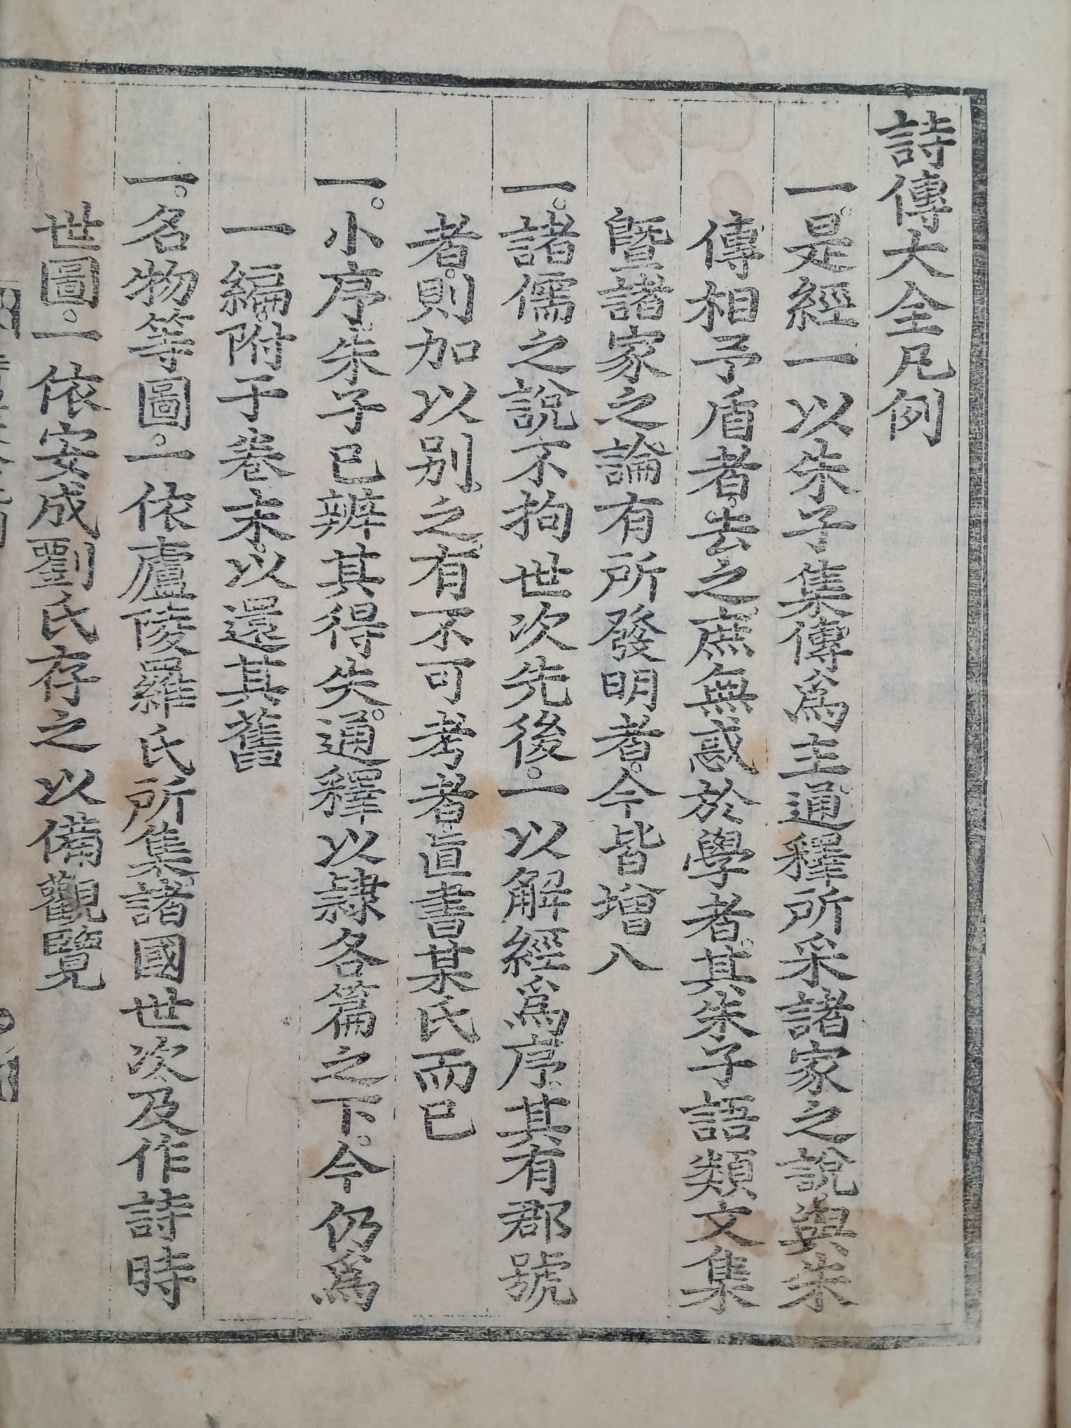 詩傳大全凡例
一。是經一以朱子集傳爲主通釋所采諸家之說與朱
傳相予盾者。去之庶無惑於學者。其朱子語類文集
曁諸家之論有所發明者。今皆增入
一。諸儒之說不拘世次先後。一以解經爲序。其有郡號
者。則加以别之。有不可考者直書某氏而已
一。小序。朱子已辨其得失。通釋以隷各篇之下。今仍爲
一編附于卷末。以還其舊
一。名物等圖。一依廬陵羅氏所集諸國世次及作詩時
世圖。一依安成劉氏存之以備觀覽